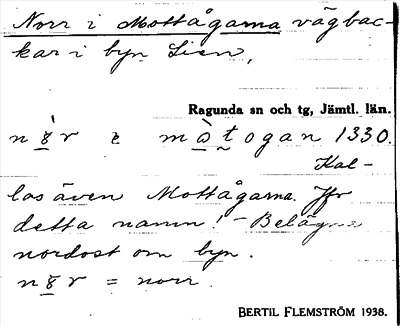 Norr i Mottågarna vägbac-
kar i byn Lien,
Ragunda sn och tg, Jämtl. län.
n ꞛ r i m ɑ̀ t o g a n 1330.
Kal-
las även Mottågarna. Jfr
detta namn! – Belägna
nordost om byn.
n ꞛ r = norr.
BERTIL FLEMSTRÖM 1938.